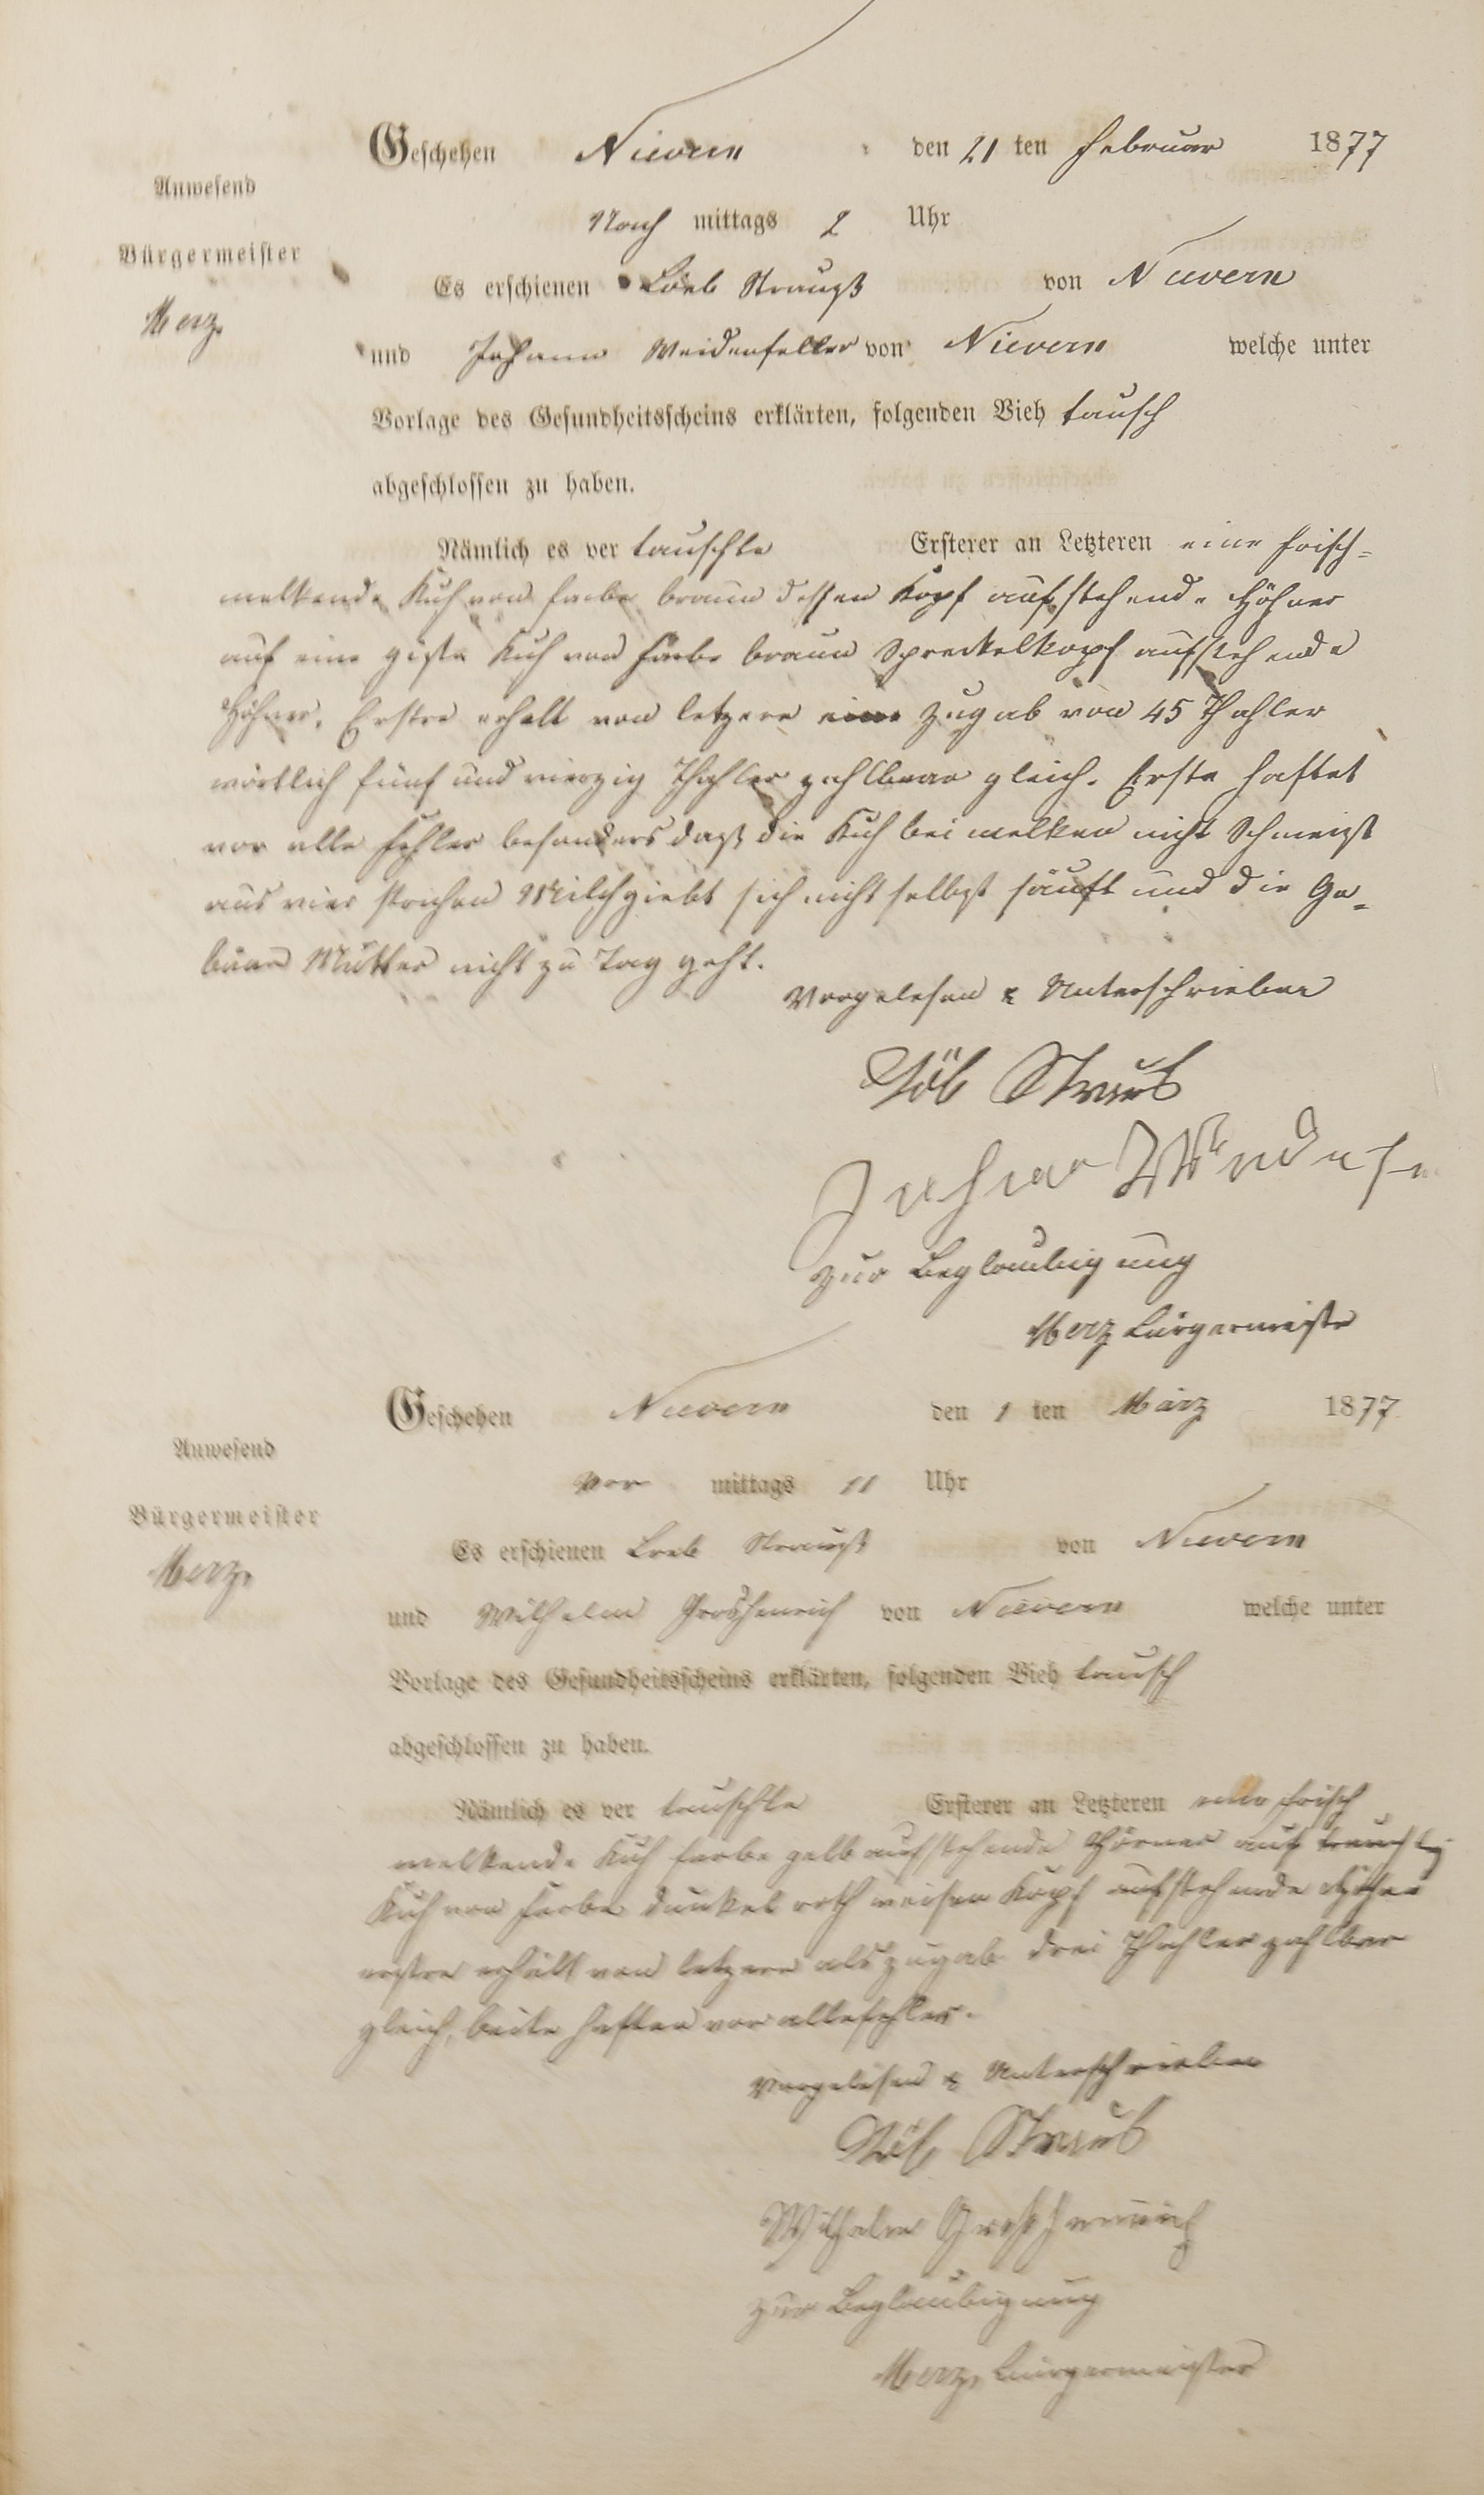 Geschehen Nievern den 21 ten Februar 1877
Anwesend
Nach mittags 2 Uhr
Bürgermeister
Es erschienen Löeb Strauß von Nievern
Merz
und Johann Weidenfeller von Nievern welche unter
Vorlage des Gesundheitsscheins erklärten, folgenden Vieh tausch
abgeschlossen zu haben.
Nämlich es ver tauschte Ersterer an Letzteren eine frisch=
melkende Kuh von farbe braun dessen Kopf aufstehende Höhner
auf eine giste Kuh von farbe braun Spreckelkopf aufstehende
Höhner. Erstre erhalt von letzere eine zugab von 45 Thahler
wörtlich fünf und vierzig Thahler zahlbaar gleich. Erste haftet
vor alle fehler besonders daß die Kuh bei melken nicht Schmeißt
aus vier strichen Milch giebt sich nicht selbst säuft und die Ge=
bäar Mutter nicht zu Tag geht.
Vorgelesen & Unterschrieben
Löb Straus
Johan
zur Beglaubigung
Merz Bürgermeister
Geschehen Nievern den 1 ten März 1877
Anwesend
Vor mittags 11 Uhr
Bürgermeister
Es erschienen Loeb Strauß von Nievern
Merz
und Wilhelm Groshenrich von Nievern welche unter
Vorlage des Gesundheitsscheins erklärten, folgenden Vieh tausch
abgeschlossen zu haben.
Nämlich es ver tauschte Ersterer an Letzteren eine frisch
melkende Kuh farbe gelb aufstehende Hörner auf trächtig
Kuh von farbe dunkel roth weisen Kopf aufstehende Höhner
erstre erhält von letzere als zugab drei Thahler zahlbar
gleich, beite haften vor alle fehler.
Vorgelesen & Unterschrieben
Löb Straus
Wilhelm Großhennrich
zur Beglaubigung
Merz Bürgermeister